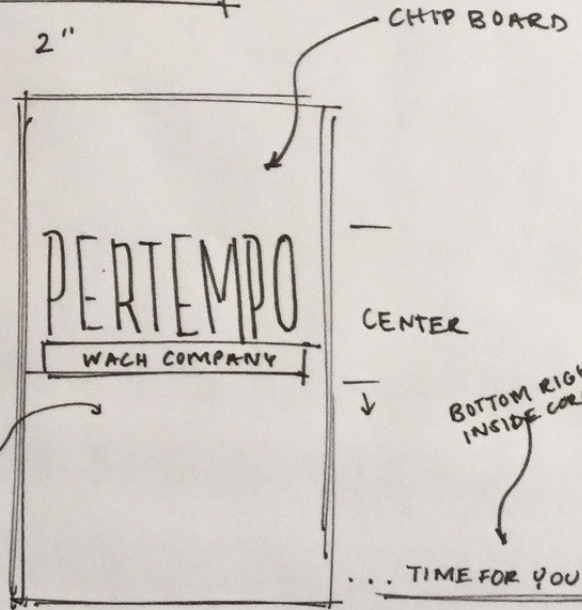 CHIP BOARD
2"
PERTEMPO
WACH COMPANY
CENTER
BOTTOM
INSIDE
... TIME FOR YOU